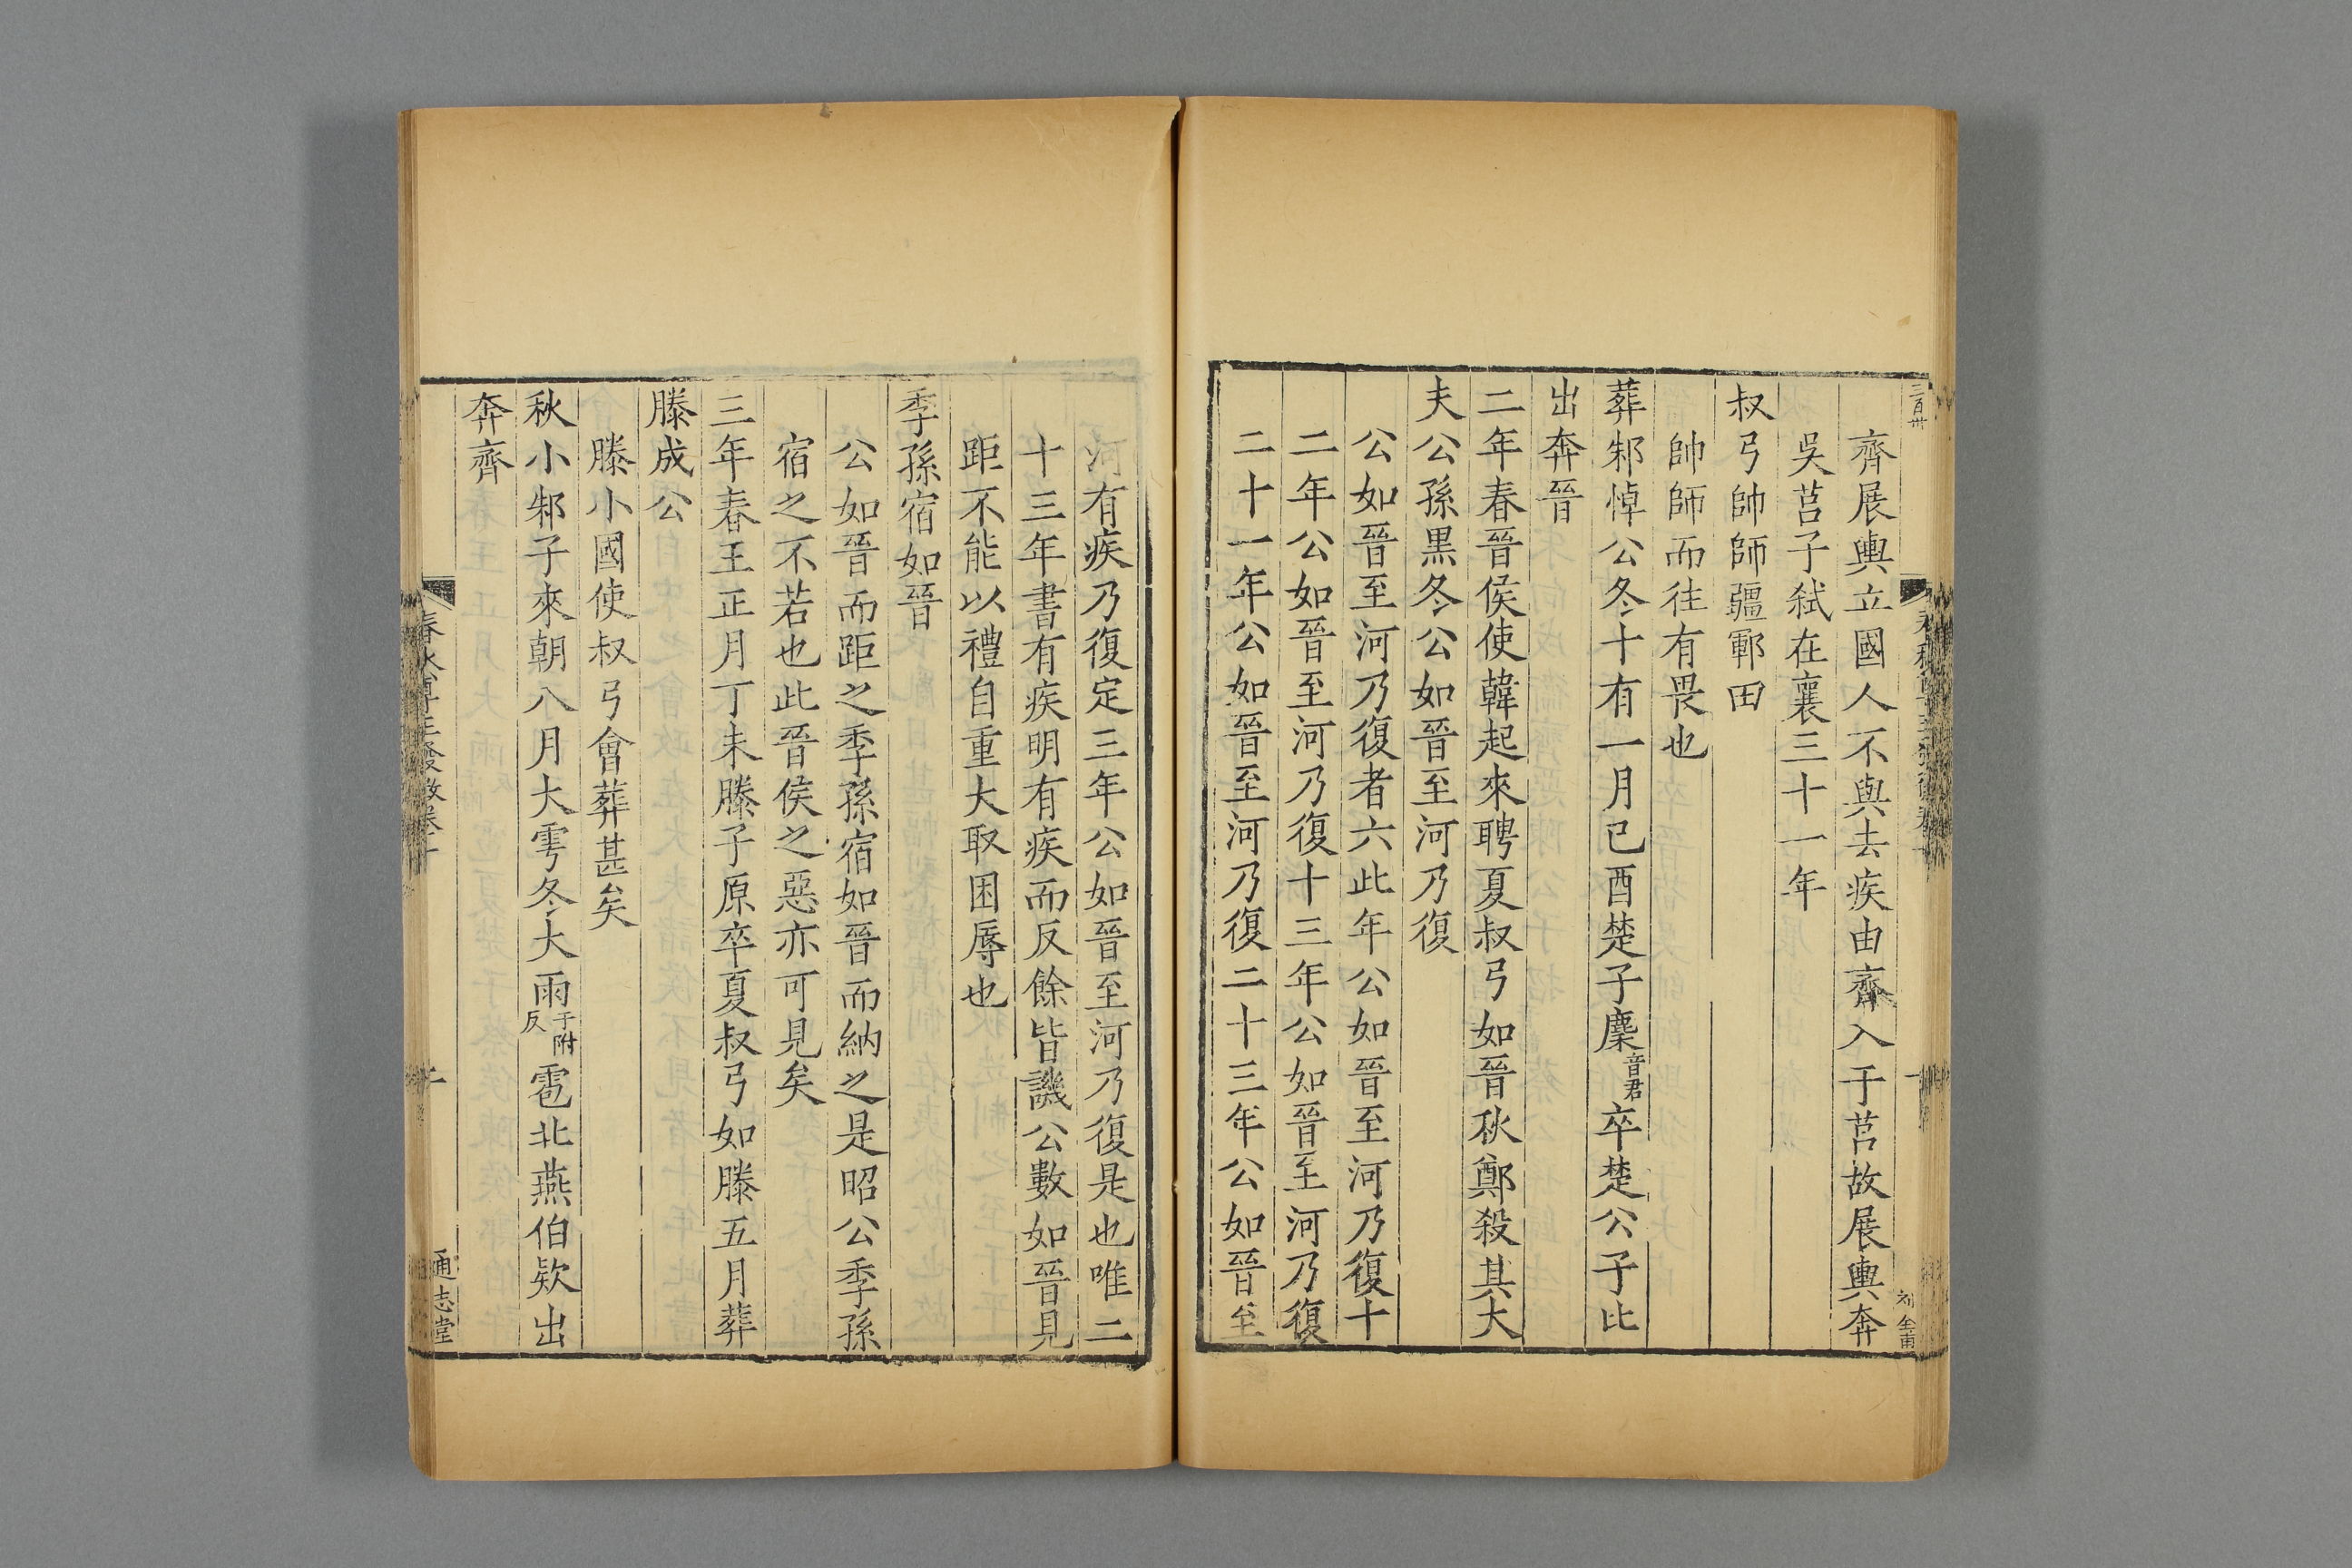 齊展輿立國人不與去疾由齊入于莒故展輿奔
吳莒子弒在襄三十一年
叔弓帥師疆鄆田
帥師而往有畏也
葬邾悼公冬十有一月己酉楚子麇音君卒楚公子比
出奔晉
二年春晉侯使韓起來聘夏叔弓如晉秋鄭殺其大
夫公孫黑冬公如晉至河乃復
公如晉至河乃復者六此年公如晉至河乃復十
二年公如晉至河乃復十三年公如晉至河乃復
二十一年公如晉至河乃復二十三年公如晉至
河有疾乃復定三年公如晉至河乃復是也唯二
十三年書有疾明有疾而反餘皆譏公數如晉見
距不能以禮自重大取困辱也
季孫宿如晉
公如晉而距之季孫宿如晉而納之是昭公季孫
宿之不若也此晉侯之惡亦可見矣
三年春王正月丁未滕子原卒夏叔弓如滕五月葬
滕成公
滕小國使叔弓會葬甚矣
秋小邾子來朝八月大雩冬大雨于附反雹北燕伯款出
奔齊
通志堂